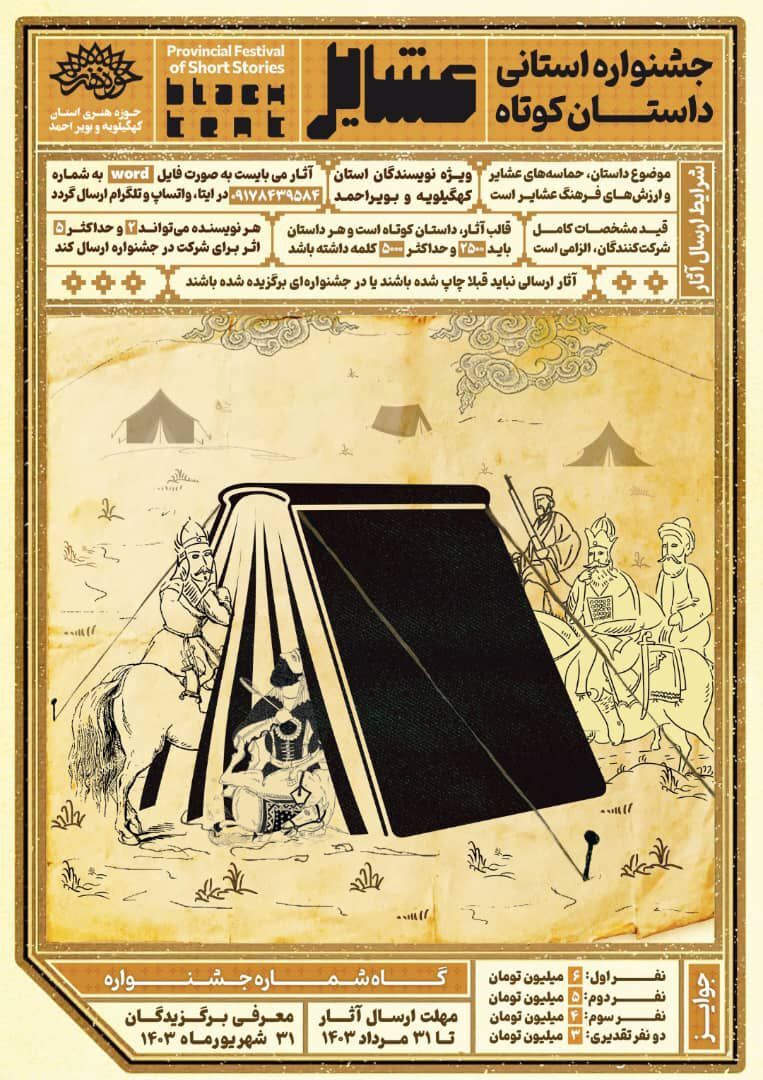 جشنواره استانی
داستان کوتاه
عشایر
Provincial Festival
of Short Stories
black
tent
حوزه هنری استان
کهگیلویه و بویر احمد
شرایط ارسال آثار
موضوع داستان، حماسه‌های عشایر
و ارزش‌های فرهنگ عشایر است
ویژه نویسندگان استان
کهگیلویه و بویراحمد
آثار می بایست به صورت فایل word به شماره
۰۹۱۷۸۴۳۹۵۸۴ در ایتا، واتساپ و تلگرام ارسال گردد
قید مشخصات کامل
شرکت‌کنندگان، الزامی است
قالب آثار، داستان کوتاه است و هر داستان
باید ۲۵۰۰ و حداکثر ۵۰۰۰ کلمه داشته باشد
هر نویسنده می‌تواند ۲ و حداکثر ۵
اثر برای شرکت در جشنواره ارسال کند
آثار ارسالی نباید قبلا چاپ شده باشند یا در جشنواره‌ای برگزیده شده باشند
جوایز
نفر اول: ۶ میلیون تومان
نفر دوم: ۵ میلیون تومان
نفر سوم: ۴ میلیون تومان
دو نفر تقدیری: ۳ میلیون تومان
گاه شماره جشنواره
مهلت ارسال آثار
تا ۳۱ مرداد ۱۴۰۳
معرفی برگزیدگان
۳۱ شهریورماه ۱۴۰۳